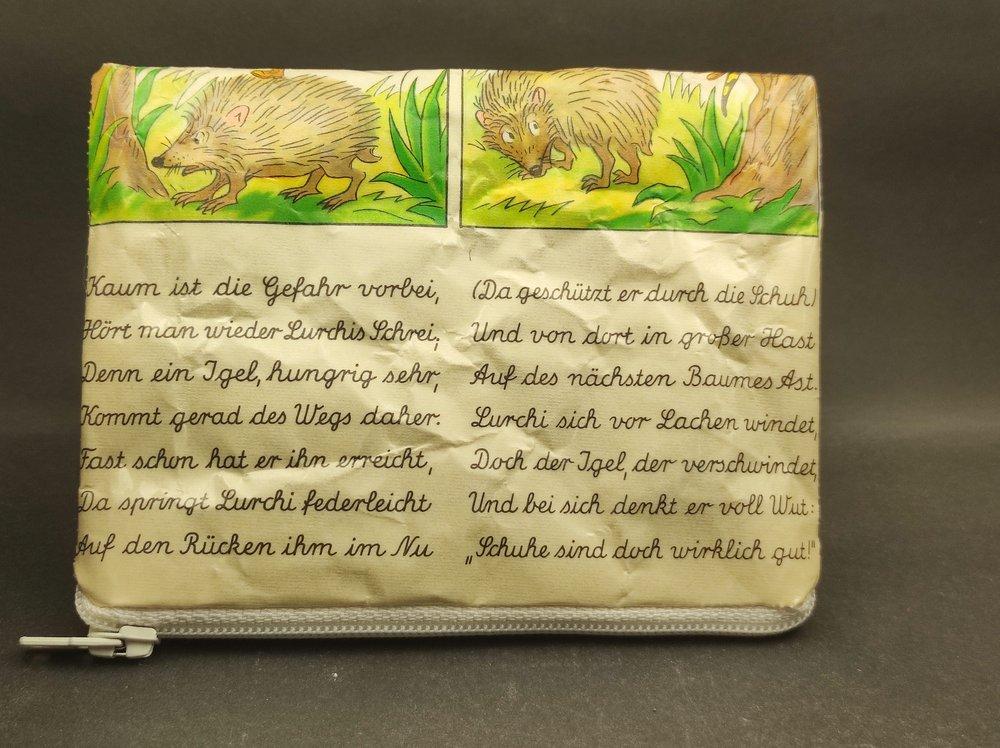 Kaum ist die Gefahr vorbei,
Hört man wieder Lurchis Schrei;
Denn ein Igel, hungrig sehr,
Kommt gerad des Wegs daher.
Fast schon hat er ihn erreicht,
Da springt Lurchi federleicht
Auf den Rücken ihm im Nu
(Da geschützt er durch die Schuh)
Und von dort in großer Hast
Auf des nächsten Baumes Ast.
Lurchi sich vor Lachen windet,
Doch der Igel, der verschwindet,
Und bei sich denkt er voll Wut:
„Schuhe sind doch wirklich gut!"